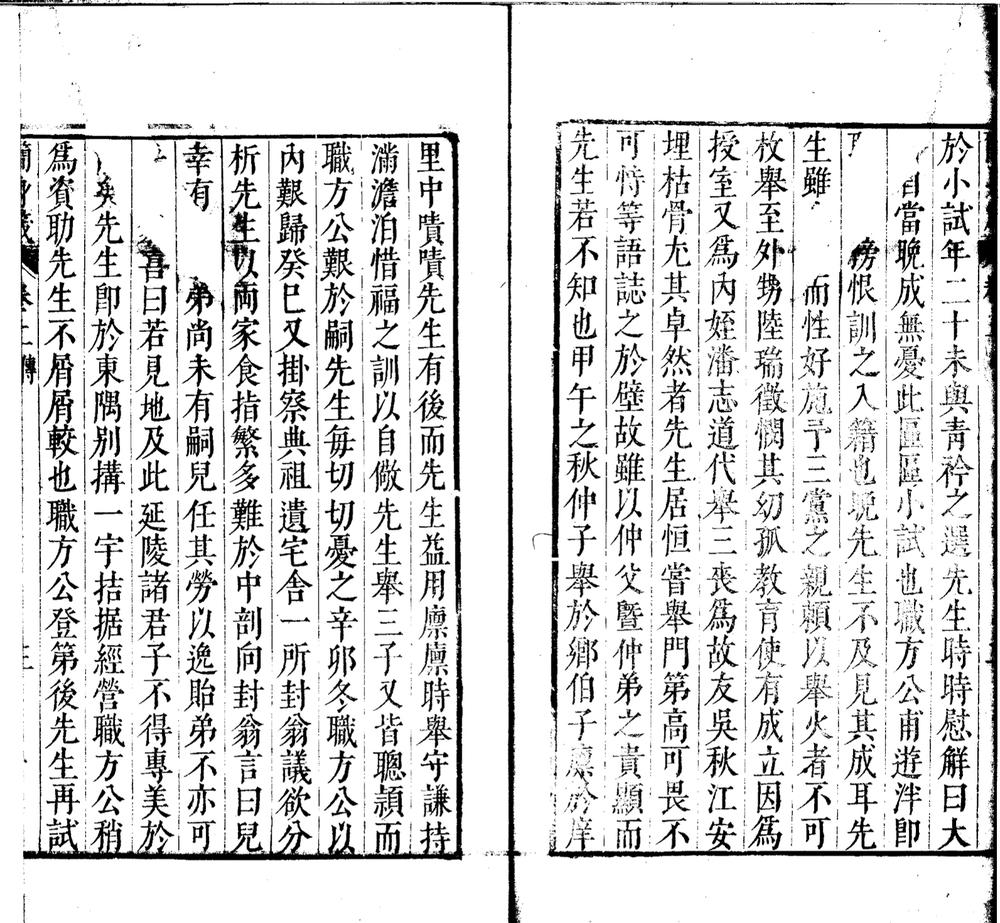 於小試年二十未與青衿之選先生時時慰解曰大
自當晩成無憂此區區小試也職方公甫遊泮卽
膀恨訓之入籍也晩先生不及見其成耳先
生雖而性好施予三黨之親賴以舉火者不可
枚舉至外甥陸瑞徵憫其幼孤教育使有成立因爲
授室又爲內姪潘志道代舉三喪爲故友吳秋江安
埋枯骨尤其卓然者先生居恒嘗舉門第高可畏不
可恃等語誌之於壁故雖以仲父曁仲弟之貴顯而
先生若不知也甲午之秋仲子舉於鄉伯子廩於庠
里中嘖嘖先生有後而先生益用廩廩時舉守謙持
滿澹泊惜福之訓以自儆先生舉三子又皆聰頴而
職方公艱於嗣先生每切切憂之辛卯冬職方公以
內艱歸癸巳又掛察典祖遺宅舍一所封翁議欲分
析先生以兩家食指繁多難於中剖向封翁言曰兒
幸有弟尚未有嗣兒任其勞以逸貽弟不亦可
喜曰若見地及此延陵諸君子不得專美於
矣先生卽於東隅別搆一宇拮据經營職方公稍
爲資助先生不屑屑較也職方公登第後先生再試
傳
三